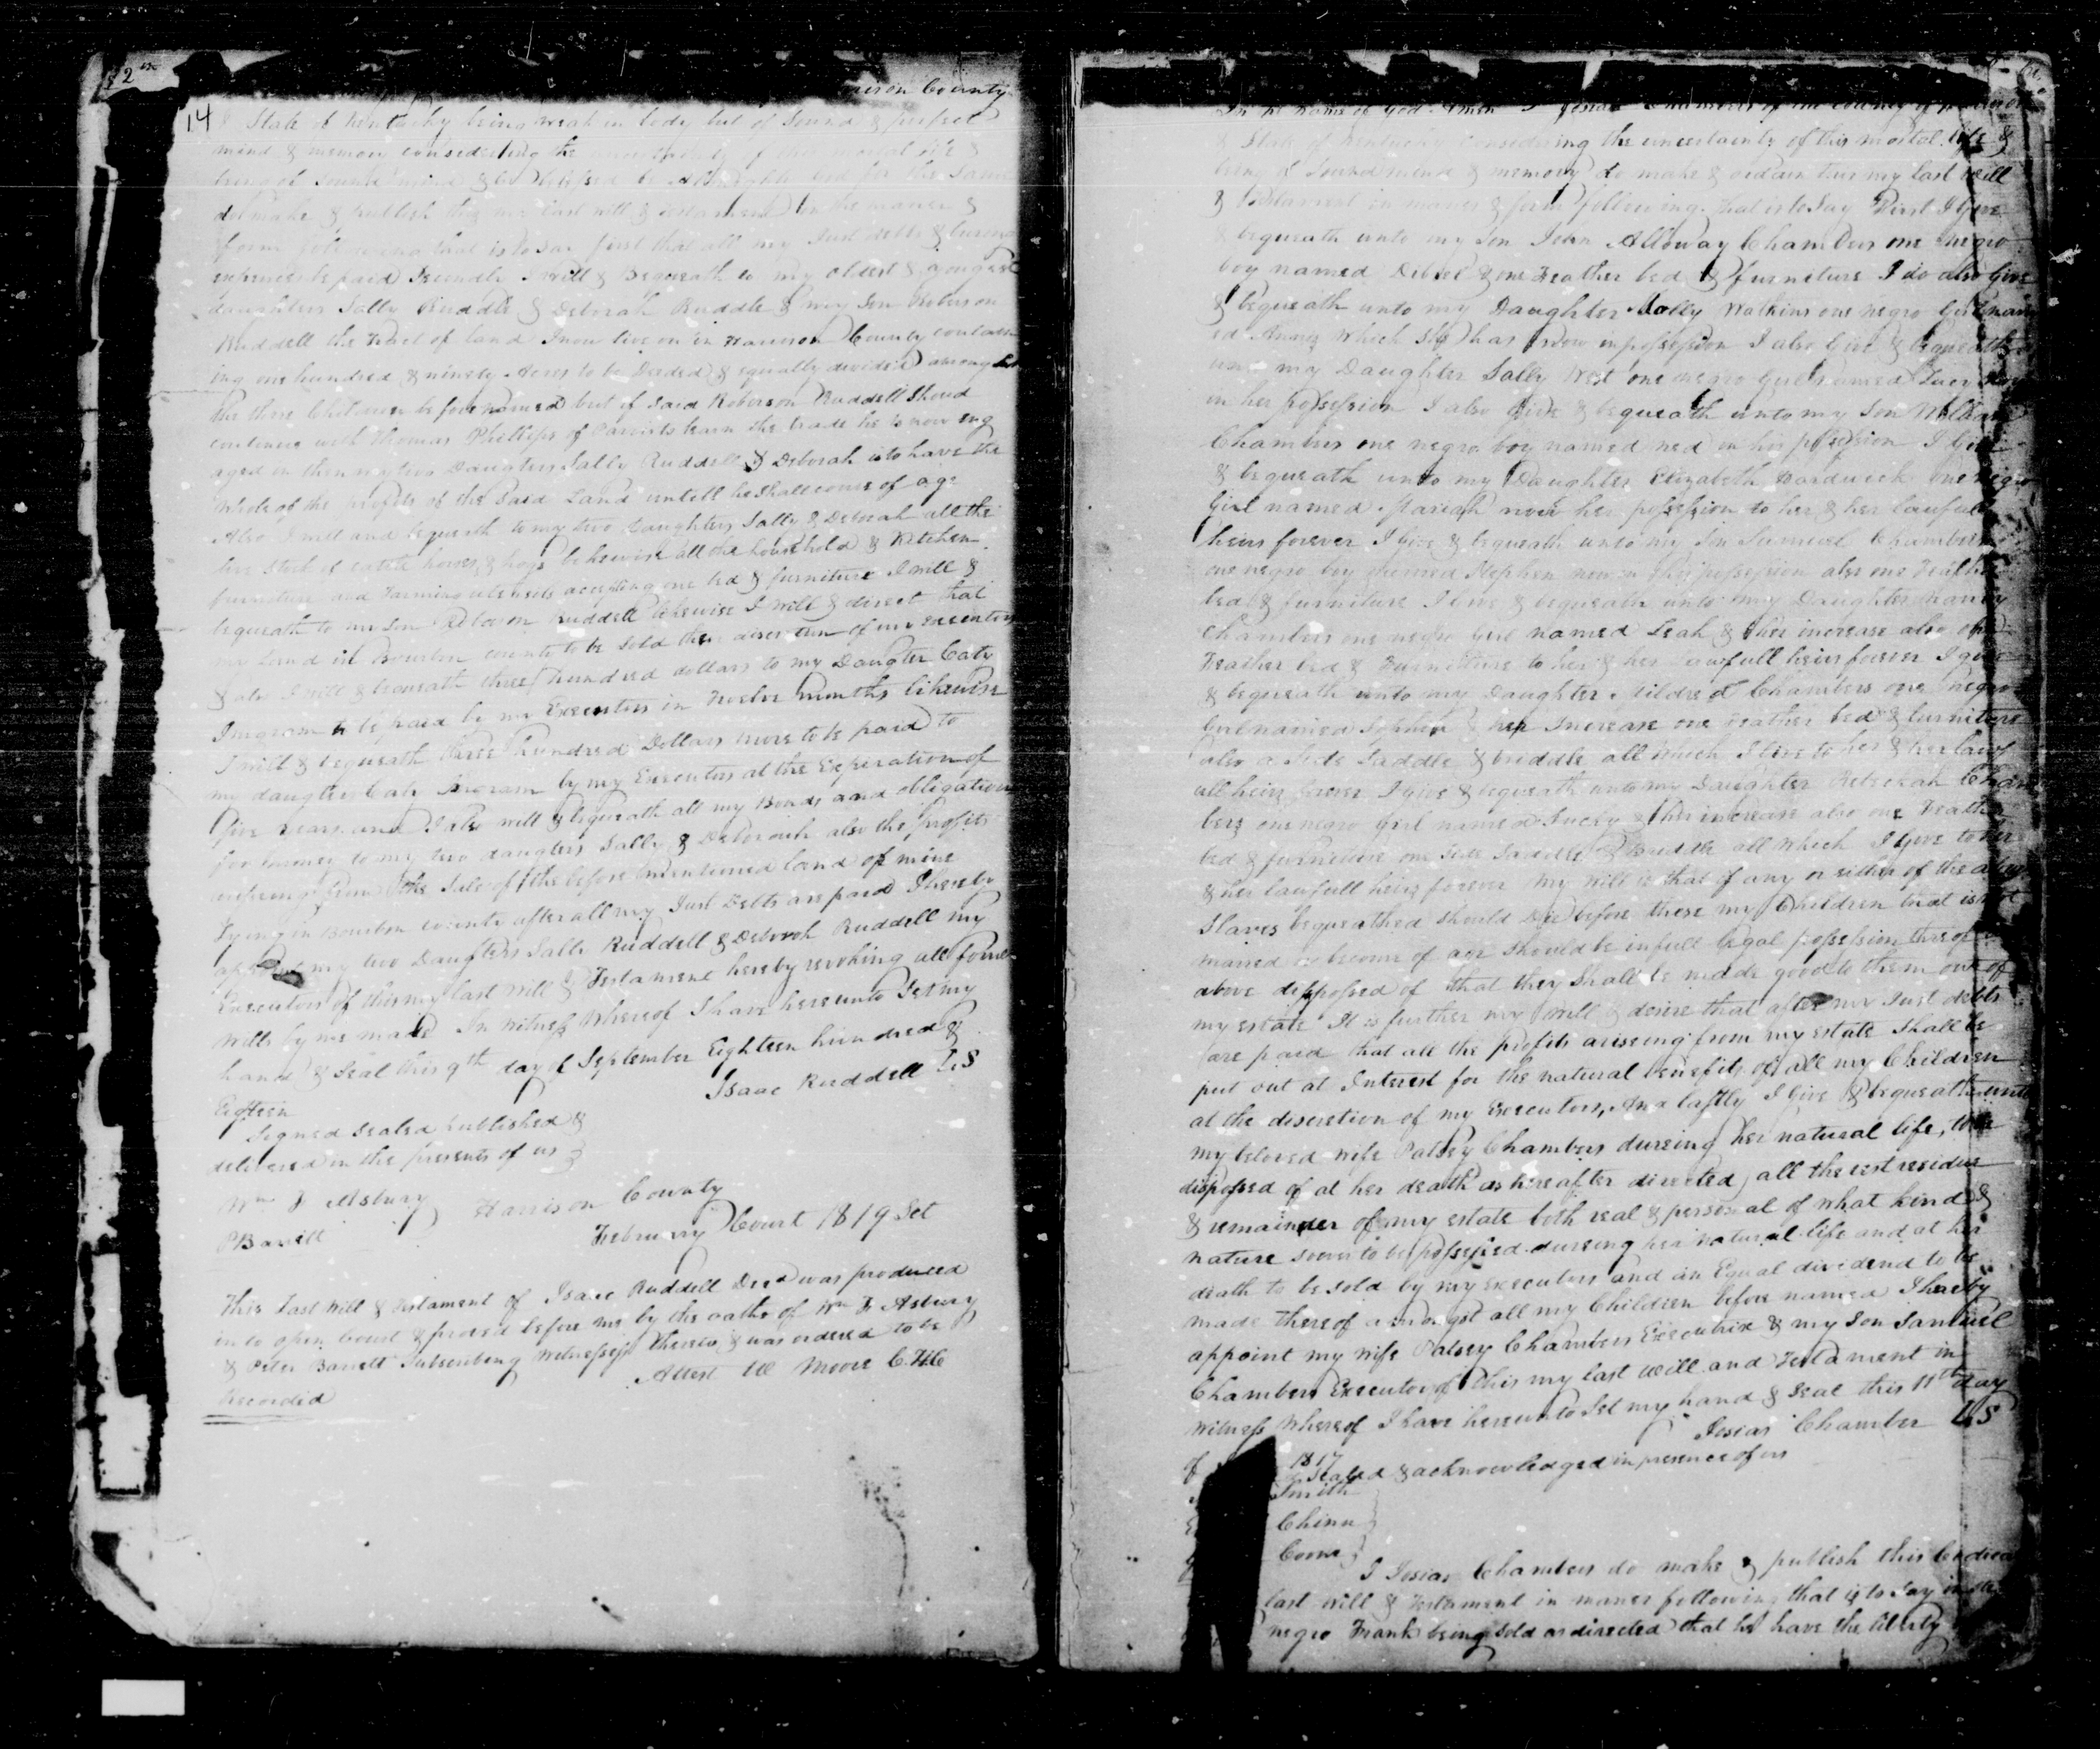 14
County
& State of Kentucky being weak in body but of Sound & perfect
mind & memory considering the of this mortal life &
being of sound mind & be Almighty God for the same
do make & publish this my last will & testament in the maner &
form following that is to say first that all my Just debts &
expences be paid Secondly I will & Bequeath to my oldest & youngest
daughters Sally Ruddle & Deborah Ruddle & my Son Roberson
Ruddell the tract of land I now live on in Harrison County contain
ing one hundred & ninety Acres to be Deeded & equally devided among
the three Children before named but if Said Roberson Ruddell Shoud
continue with Thomas Phillips of learn the trade he is now eng
aged in then my two Daugters Sally Ruddell & Deborah is to have the
whole of the profits of the Said Land untill he Shall come of age
Also I will and bequeath to my two daughters Sally & Deborah all the
live Stock of cattle horses & hogs likewise all the household & Kitchen
furniture and Farming utensels accepting one bed & furniture I will &
bequeath to my Son Roberson Ruddell likewise I will & direct that
my Land in Bourbon county to be sold the discretion of my executors
& also I will & bequeath three hundred dollars to my Daugter Caty
Ingram to be paid by my Executors in twelve months likewise
I will & bequeath three hundred Dollars more to be paid to
my daugter Caty Ingram by my Executors at the Experation of
five years and I also will & bequeath all my Bonds and obligations
for money to my two daugters Sally & Deborah also the profits
from the Sale of the before mentioned land of mine
Lying in Bourbon county after all my Just Debts are paid I hereby
my two Daugters Sally Ruddell & Deborah Ruddell my
Executors of this my last will & Testament hereby revoking all former
wills by me made In witness whereof I have hereunto Set my
hand & Seal this 9th day of September Eighteen hundred &
Eigteen
Isaac Ruddell LS
Signed Sealed published &
delivered in the presents of us
Wm Asbury
P Barrett
Harrison County
February Court 1819 Set
This Last Will & Testament of Isaac Ruddell Decd was produced
in to open Court & proved before me by the oaths of Wm Asbury
& Peter Barrett Subscribing Witnesses thereto & was ordered to be
Recorded
Attest W Moore C.H.C
In the name of God Amen I Josias Chambers of the County of
& State of Kentucky Considering the uncertainty of this mortal life &
being of Sound mind & memory do make & ordain this my last will
& Testament in maner & form following. that is to Say First I Give
& bequeath unto my Son John Alloway Chambers one negro
boy named & one Feather bed & furniture I do also Give
& bequeath unto my Daughter Molly Watkins one negro Girl nam
ed which She has now in possession I also Give & bequeath
unto my Daughter Sally West one negro girl named Lucy
in her possession I also Give & bequeath unto my Son William
Chambers one negro boy named ned in his possession I Give
& bequeath unto my Daughter Elizabeth Hardwick one negro
Girl named Mariah now her possession to her & her lawfull
heirs forever I Give & bequeath unto my Son Samuel Chambers
one negro boy named Stephen now in his possession also one Feather
bed & furniture I Give & bequeath unto my Daughter Nancy
Chambers one negro Girl named Leah & her increase also one
Feather bed & Furniture to her & her lawfull heirs forever I give
& bequeath unto my Daughter Mildred Chambers one negro
Girl named & her Increase one Feather bed & furniture
also a Side Saddle & briddle all which I Give to her & her lawf
ull heirs forever I give & bequeath unto my Daughter Rebecah Cham
bers one negro Girl named Lucky & her increase also one Feather
bed & furniture one Side Saddle & Briddle all which I Give to her
& her lawfull heirs forever my will is that if any or either of the
Slaves bequeathed should Die before those my Children that is not
maried or become of age should be in full legal possession thereof
above dispossed of that they Shall be made good to them out of
my estate It is further my will & desire that after my Just debts
are paid that all the profits arissing from my estate Shall be
put out at Interest for the natural benefits of all my Children
at the discretion of my Executors, And lastly I Give & bequeath unto
my beloved wife Patsey Chambers dureing her natural life, to be
dispossed of at her death as hereafter directed, all the rest residue
& remainder of my estate both real & personal of what kind &
nature soever to be possessed dureing her natural life and at her
death to be sold by my executors and an Equal dividend to be
made thereof amongst all my Children before named I hereby
appoint my wife Patsey Chambers Executrix & my Son Samuel
Chambers Executor of this my last Will and Testament in
Witness whereof I have hereunto Set my hand & Seal this 11th day
of 1817
Josias Chamber LS
Sealed & acknowledged in presence of us
Smith
Chinn
Coons
I Josias Chambers do make & publish this Codicil
last will & Testament in maner following that is to Say
negro Frank being Sold as directed that he have the liberty